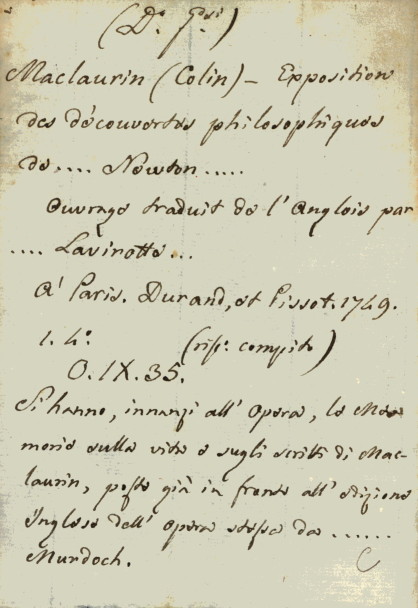 (Do. Gdi)
Maclaurin (Colin) – Exposition
des découvertes philosophiques
de .... Newton .....
Ouvrage traduit de l'Anglois par
.... Lavirotte ...
A' Paris. Durand, et Pissot. 1749.
1. 4o. (risp. compito)
O. IX. 35.
Si hanno, innanzi all' Opera, le Me-
morie sulla vita e sugli scritti di Mac-
laurin, poste già in fronte all' edizione
Inglese dell' opera stessa da ......
Murdoch.
C